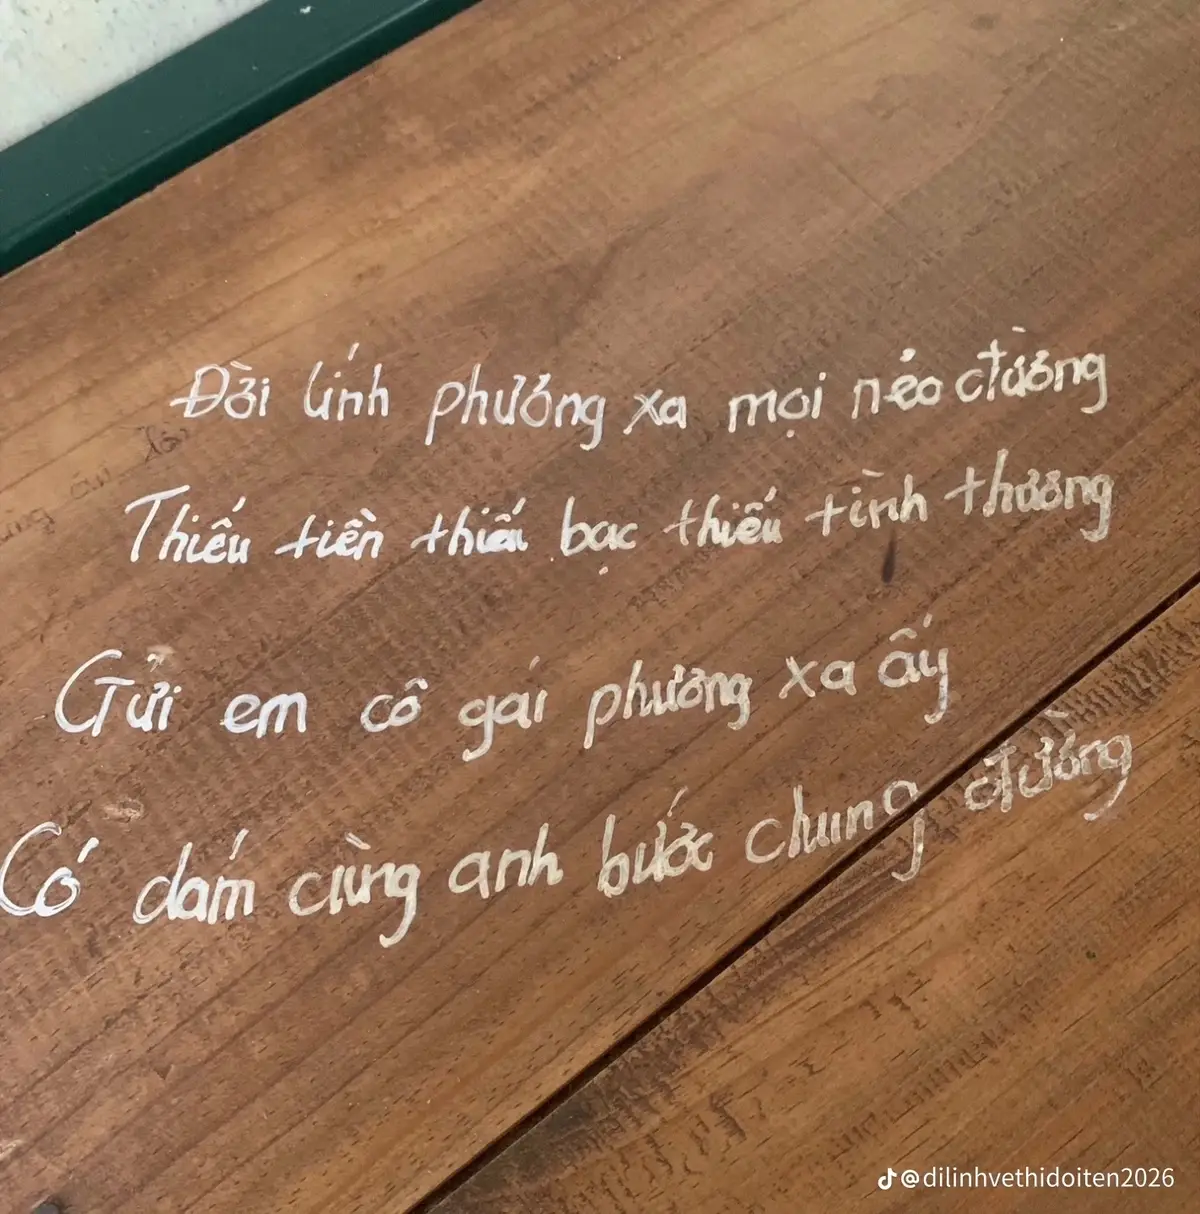 Đời lính phương xa mọi nẻo đường
Thiếu tiền thiếu bạc thiếu tình thương
Gửi em cô gái phương xa ấy
Có dám cùng anh bước chung đường
@dilinhvethidoiten2026